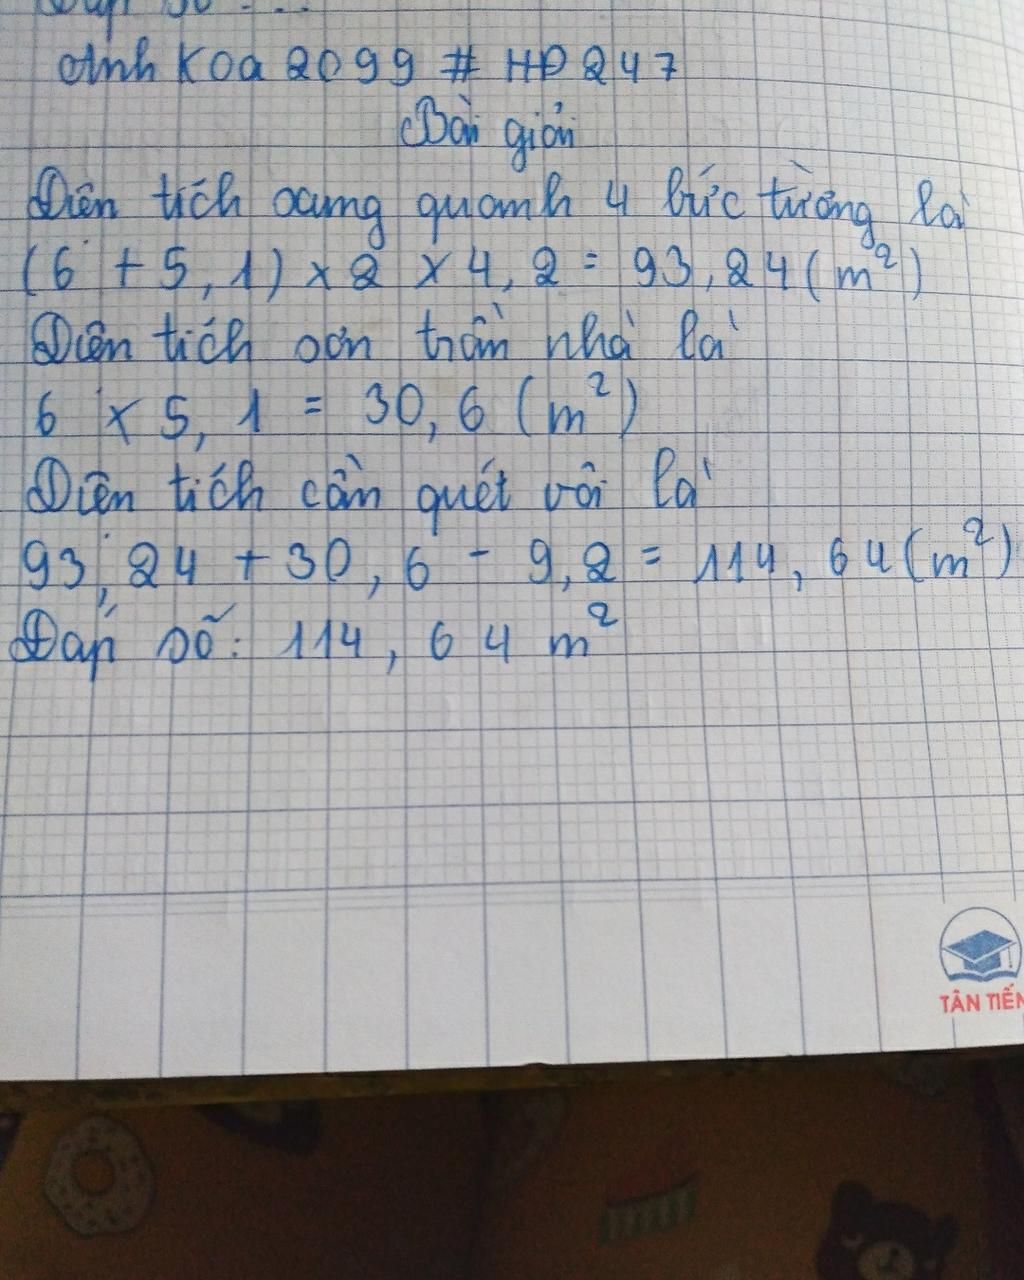 Đáp số: ...
Anh Koa 2099 # HD 247
Bài giải
Diện tích xung quanh 4 bức tường là
(6 + 5, 1) x 2 x 4, 2 = 93, 24 (m²)
Diện tích sơn trần nhà là
6 x 5, 1 = 30, 6 (m²)
Diện tích cần quét vôi là
93, 24 + 30, 6 - 9, 2 = 114, 64 (m²)
Đáp số: 114, 64 m²
TÂN TIẾN